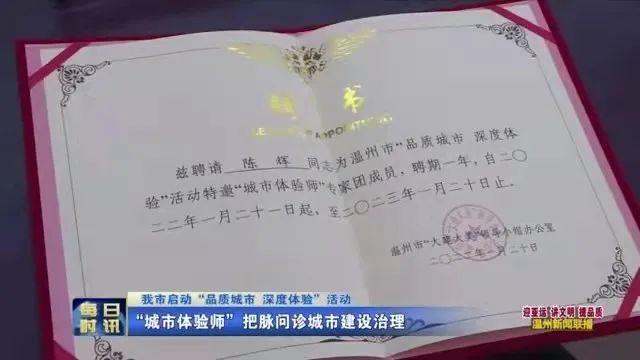 聘 书
LETTER OF APPOINTMENT
兹聘请 陈辉 同志为温州市“品质城市 深度体
验”活动特邀“城市体验师”专家团成员，聘期一年，自二〇
二二年一月二十一日起，至二〇二三年一月二十日止。
温州市“大建大美”领导小组办公室
二〇二二年一月二十日
每日时讯
我市启动“品质城市 深度体验”活动
“城市体验师”把脉问诊城市建设治理
迎亚运 讲文明 提品质
温州新闻联播